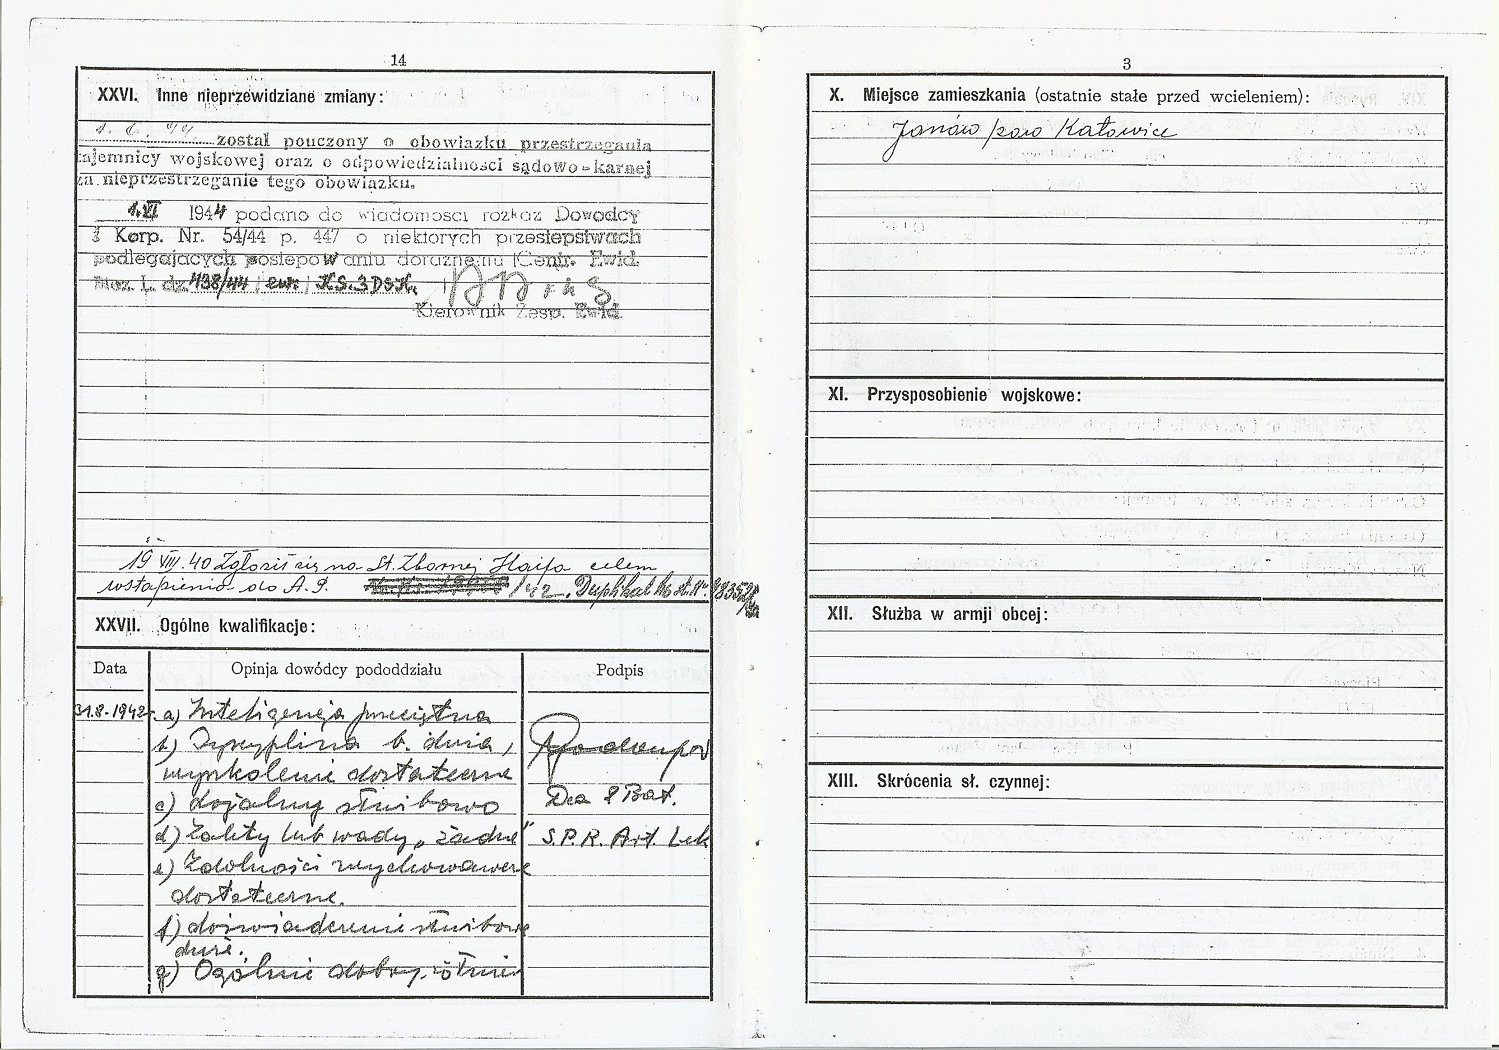 14
XXVI. Inne nieprzewidziane zmiany:
1. 6. 44 został pouczony o obowiązku przestrzegania
tajemnicy wojskowej oraz o odpowiedzialności sądowo-karnej
za nieprzestrzeganie tego obowiązku.
1.VI 1944 podano do wiadomości rozkaz Dowódcy
Korp. Nr. 54/44 p. 447 o niektórych przestępstwach
podlegających postępowaniu doraźnemu (Centr. Ewid.
L. dz. 438/44 / ew. / KS.3DSK.
Kierownik Zesp. Ewid.
19 VIII. 40 Zgłosił się na St. Zbornej Haifa celem
wstąpienia do A. P. /42. Duplikat
XXVII. Ogólne kwalifikacje:
Data Opinja dowódcy pododdziału Podpis
31.8-1942r. a) Inteligencja przeciętna
b) Dyscyplina b. duża,
wyszkolenie dostateczne
c) lojalny służbowo Dca 8 Bat.
d) Zalety lub wady „żadne" S.P.R. Art. Lek
e) Zdolności wychowawcze
dostateczne.
f) doświadczenie służbowe
duże.
g) Ogólnie dobry żołnierz
3
X. Miejsce zamieszkania (ostatnie stałe przed wcieleniem):
Janów pow Katowice
XI. Przysposobienie wojskowe:
XII. Służba w armji obcej:
XIII. Skrócenia sł. czynnej: